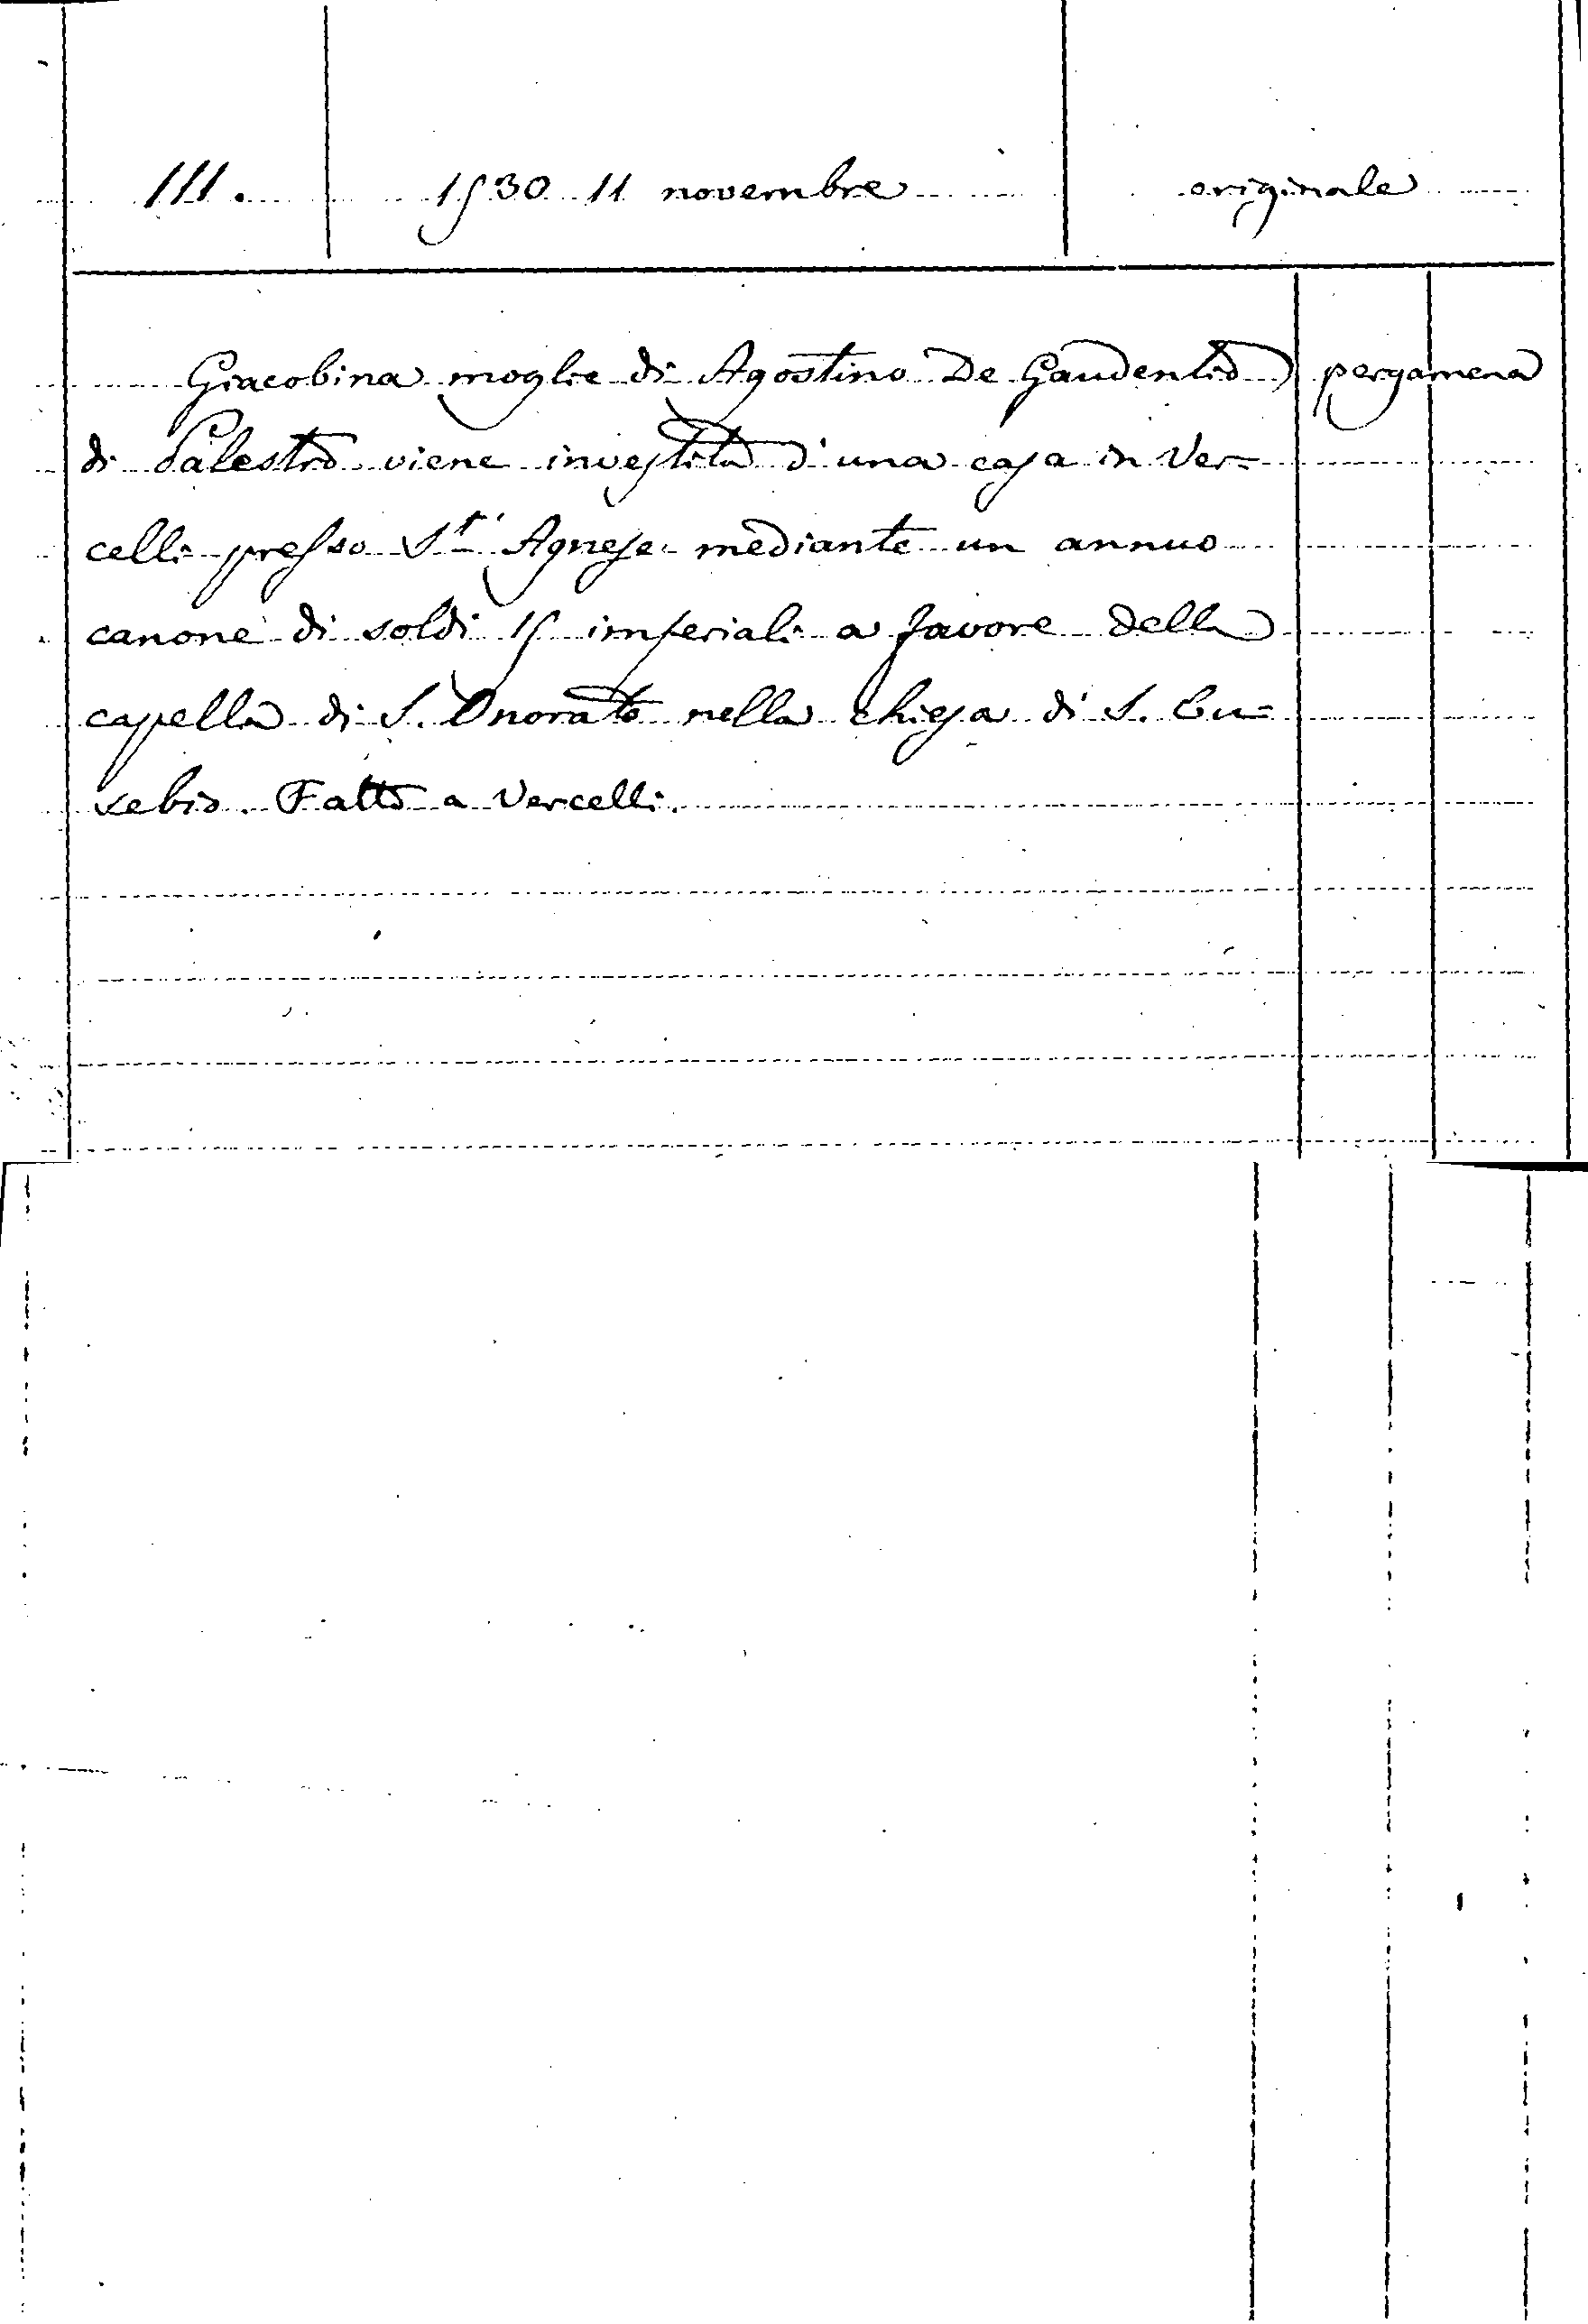 III. 1530 11 novembre originale
Giacobina moglie di Agostino De Gaudentio pergamena
di Palestro viene investita d'una casa in Ver=
celli presso St' Agnese mediante un annuo
canone di soldi 15 imperiali a favore della
capella di S. Onorato nella chiesa di S. Eu=
sebio. Fatto a Vercelli.